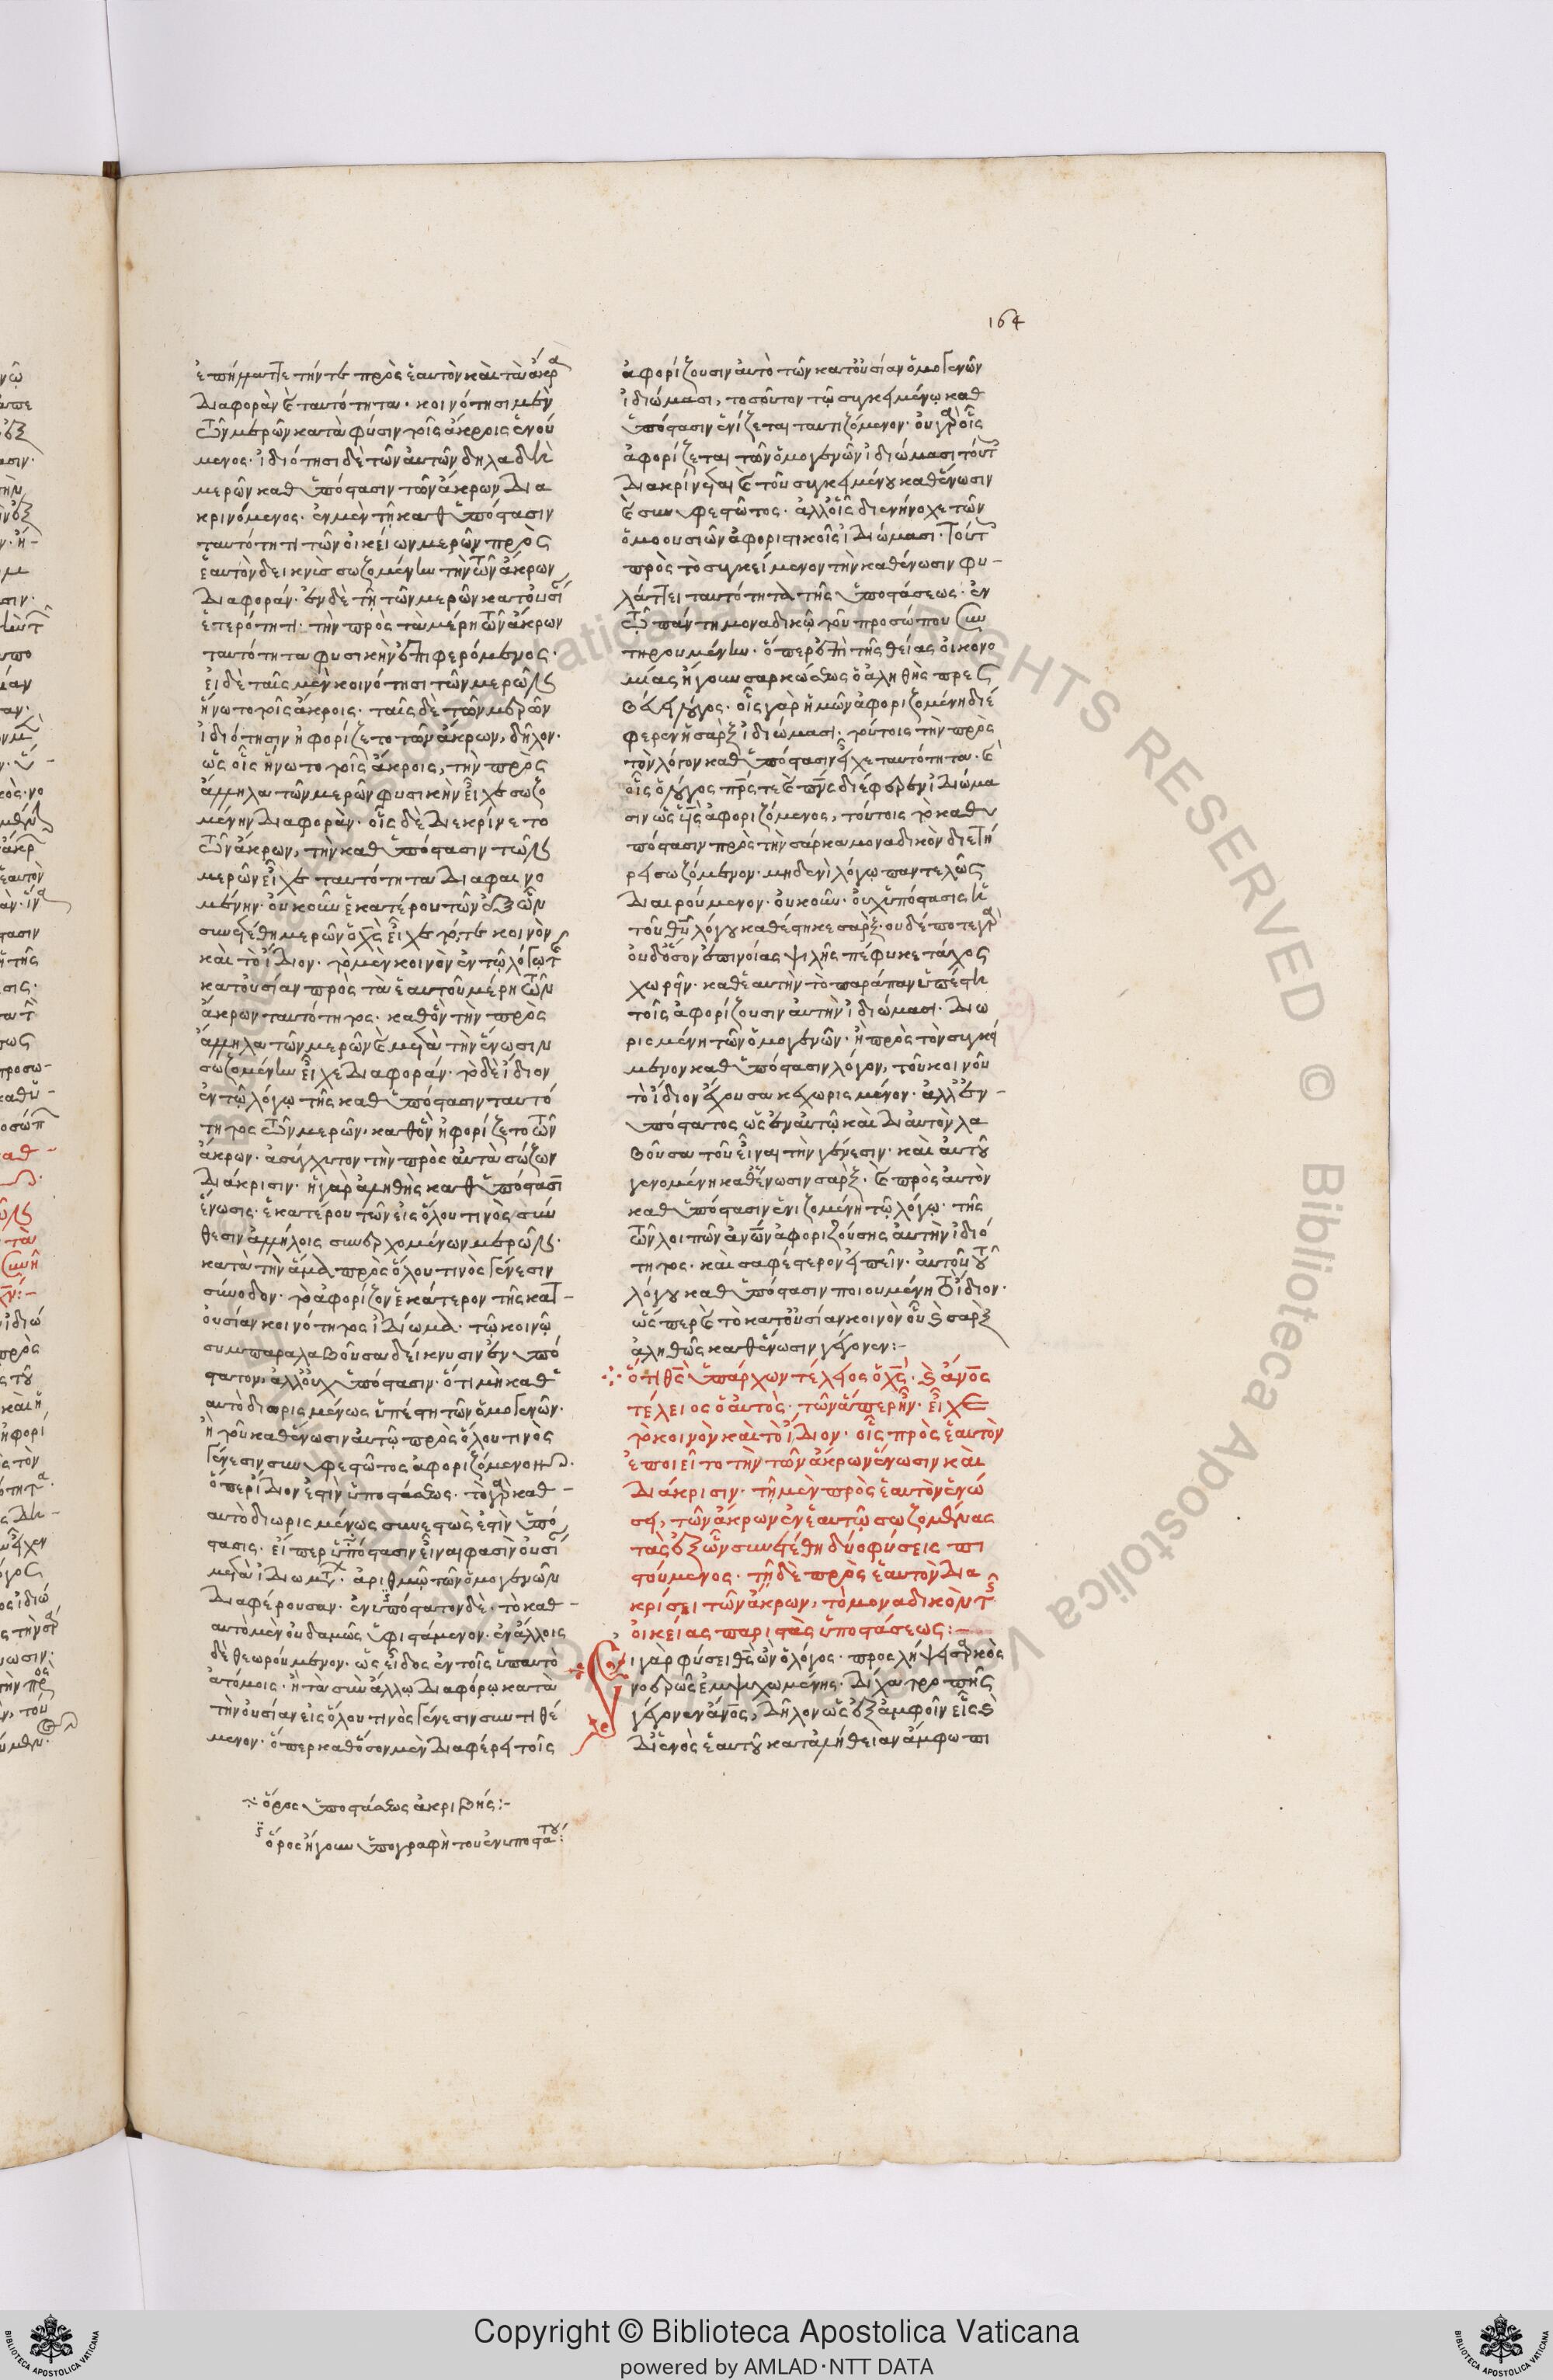 164
ἐπήγματε τήν τε πρὸς ἑαυτὸν καὶ τὰ ἄκρα
διαφορὰν καὶ ταυτότητα. κοινότησι μὲν
τῶν μερῶν κατὰ φύσιν τοῖς ἄκροις ἑνού
μενος. ἰδιότησι δὲ τῶν αὐτῶν δηλαδὴ
μερῶν καθ ὑπόστασιν τῶν ἄκρων δια
κρινόμενος. ἐν μὲν τῆ καθ ὑπόστασιν
ταυτότητι τῶν οἰκείων μερῶν πρὸς
ἑαυτὸν δεικνὺς σωζομένην τὴν τῶν ἄκρων
διαφοράν. ἐν δὲ τῆ τῶν μερῶν κατουσί
ἑτερότητι. τὴν πρὸς τὰ μέρη τῶν ἄκρων
ταυτότητα φυσικὴν ἐπιφερόμενος.
εἰ δὲ ταῖς μὲν κοινότησι τῶν μερῶν
ἥνωτο τοῖς ἄκροις. ταῖς δὲ τῶν μερῶν
ἰδιότησιν ἠφορίζετο τῶν ἄκρων, δῆλον.
ὡς οἷς ἥνωτο τοῖς ἄκροις, τὴν πρὸς
ἄλληλα τῶν μερῶν φυσικὴν εἶχε σωζο
μένην διαφοράν. οἷς δὲ διεκρίνετο
τῶν ἄκρων, τὴν καθ ὑπόστασιν τῶν
μερῶν εἶχε ταυτότητα διαφαινο
μένην. οὐκοῦν ἑκατέρου τῶν ἐξ ὧν
συνετέθη μερῶν ὁ χς εἶχε τό, τε κοινὸν
καὶ τὸ ἴδιον. τὸ μὲν κοινὸν ἐν τῶ λόγω τ
κατουσίαν πρὸς τὰ ἑαυτοῦ μέρη τῶν
ἄκρων ταυτότητος. καθὃν τὴν πρὸς
ἄλληλα τῶν μερῶν καὶ μετὰ τὴν ἕνωσιν
σωζομένην εἶχε διαφοράν. τὸ δὲ ἴδιον
ἐν τῶ λόγω τῆς καθ ὑπόστασιν ταυτό
τητος τῶν μερῶν. καθὃν ἠφορίζετο τῶν
ἄκρων. ἀσύγχυτον τὴν πρὸς αὐτὰ σώζων
διάκρισιν. ἡ γὰρ ἀληθὴς καθ ὑπόστασι
ἕνωσις. ἑκατέρου τῶν εἰς ὅλου τινὸς σύν
θεσιν ἀλλήλοις συνερχομένων μερῶν.
κατὰ τὴν ἅμα πρὸς ὅλου τινὸς γένεσιν
σύνοδον. τὸ ἀφορίζον ἑκάτερον τῆς κατ
οὐσίαν κοινότητος ἰδίωμα. τῶ κοινῶ
συμπαραλαβοῦσα δείκνυσιν ἐνυπό
στατον, ἀλλοὐχ ὑπόστασιν. ὅτι μὴ καθ
αὐτὸ διωρισμένως ὑπέστη τῶν ὁμογενῶν.
ἢ τοῦ καθένωσιν αὐτῶ πρὸς ὅλου τινὸς
γένεσιν συνυφεστῶτος ἀφοριζόμενον.
ὅπερ ἴδιον ἐστὶν ὑποστάσεως. τὸ γὰρ καθ
αὐτὸ διωρισμένως συνεστὼς ἐστὶν ὑπό
στασις. εἴπερ ὑπόστασιν εἶναι φασὶν οὐσί
μετὰ ἰδιωμτ. ἀριθμῶ τῶν ὁμογενῶν
διαφέρουσαν. ἐνυπόστατον δὲ. τὸ καθ
αὐτὸ μὲν οὐδαμῶς ὑφιστάμενον. ἐν ἄλλοις
δὲ θεωρούμενον. ὡς εἶδος ἐν τοῖς ὑπαυτὸ
ἀτόμοις. ἢ τὸ σὺν ἄλλω διαφόρω κατὰ
τὴν οὐσίαν εἰς ὅλου τινὸς γένεσιν συντιθέ
μενον. ὅπερ καθόσον μὲν διαφέρει τοῖς
ὅρος ὑποστάσεως ἀκριβής:-
ὅρος ἤγουν ὑπογραφὴ του ἐνυποστάτου:
ἀφορίζουσιν αὐτὸ τῶν κατουσίαν ὁμογενῶν
ἰδιώμασι, τοσοῦτον τῶ συγκειμένω καθ
ὑπόστασιν ἑνίζεται ταυτιζόμενον. οὐ γὰρ οἷς
ἀφορίζεται τῶν ὁμογενῶν ἰδιώμασι τούτ
διακρίνεται καὶ τοῦ συγκειμένου καθένωσιν
καὶ συνυφεστῶτος. ἀλλοἷς διενήνοχε τῶν
ὁμοουσιῶν ἀφοριστικοῖς ἰδιώμασι. τούτ
πρὸς τὸ συγκείμενον τὴν καθένωσιν φυ-
λάττει ταυτότητα τῆς ὑποστάσεως. ἐν
τῶ πάντη μοναδικῶ τοῦ προσώπου συν
τηρουμένην. ὅπερ ἐπὶ τῆς θείας οἰκονο
μίας ἤγουν σαρκώσεως ὁ ἀληθὴς πρες
βεύει λόγος. οἷς γὰρ ἡμῶν ἀφοριζομένη διέ
φερεν ἡ σὰρξ ἰδιώμασι. τούτοις τὴν πρὸς
τὸν λόγον καθ ὑπόστασιν εἶχε ταυτότητα. καὶ
οἷς ὁ λόγος πρς τε καὶ πνς διέφερεν ἰδιώμα
σιν ὡς υς ἀφοριζόμενος, τούτοις τὸ καθ υ
πόστασιν πρὸς τὴν σάρκα μοναδικὸν διετή
ρει σωζόμενον. μηδενὶ λόγω παντελῶς
διαιρούμενον. οὐκοῦν. οὐχ ὑπόστασις ἡ
τοῦ θυ λόγου καθέστηκε σάρξ. ουδέποτε γὰρ
οὐδόσον ἐπινοίας ψιλῆς πέφυκε τάχος
χωρεῖν. καθεαυτὴν τὸ παράπαν ὑπέστη
τοῖς ἀφορίζουσιν αὐτὴν ἰδιώμασι. διω
ρισμένη τῶν ὁμογενῶν. ἢ πρὸς τὸν συγκεί
μενον καθ ὑπόστασιν λόγον, τοῦ κοινοῦ
τὸ ἴδιον ἔχουσα κεχωρισμένον. ἀλλἐν-
υπόστατος ὡς ἐν αὐτῶ καὶ διαὐτὸν λα
βοῦσα τοῦ εἶναι τὴν γένεσιν. καὶ αὐτοῦ
γενομένη καθένωσιν σάρξ. καὶ πρὸς αὐτὸν
καθ ὑπόστασιν ἑνιζομένη τῶ λόγω. τῆς
τῶν λοιπῶν ἀνων ἀφοριζούσης αὐτὴν ἰδιό
τητος. καὶ σαφέστερον εἰπεῖν. αὐτοῦ τοῦ
λόγου καθ ὑπόστασιν ποιουμένη τὸ ἴδιον.
ὥσπερ καὶ τὸ κατουσίαν κοινὸν οὗ καὶ σὰρξ
ἀληθῶς καθένωσιν γέγονεν:-
ὅτι θς ὑπάρχων τέλειος ὁ χς. καὶ ἄνος
τέλειος ὁ αὐτὸς. τῶν ἅπερ ἦν. εἶχε
τὸ κοινὸν καὶ τὸ ἴδιον. οἷς πρὸς ἑαυτὸν
ἐποιεῖτο τὴν τῶν ἄκρων ἕνωσιν καὶ
διάκρισιν. τῆ μὲν πρὸς ἑαυτὸν ἑνώ
σει, τῶν ἄκρων ἐν ἑαυτῶ σωζομένας
τὰς ἐξ ὧν συνετέθη δύο φύσεις πι
στούμενος. τῆ δὲ πρὸς ἑαυτὸν δια
κρίσει τῶν ἄκρων, τὸ μοναδικὸν τῆς
οἰκείας παριστὰς ὑποστάσεως:-
Εἰ γὰρ φύσει θς ὢν ὁ λόγος. προσλήψει σαρκὸς
νοερῶς ἐμψυχωμένης. δίχα τροπῆς
γέγονεν ἄνος, δῆλον ὡς ἐξ ἀμφοῖν εἷς καὶ
διενὸς ἑαυτοῦ καταλήθειαν ἄμφω πι